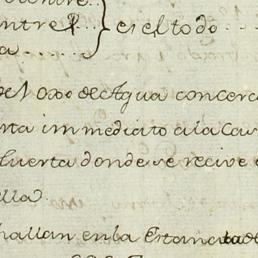 entre
es el todo
a
de Agua con cerca
ta immediato a la Cav
Huerta donde se recive
lla.
hallan en la Estancia de